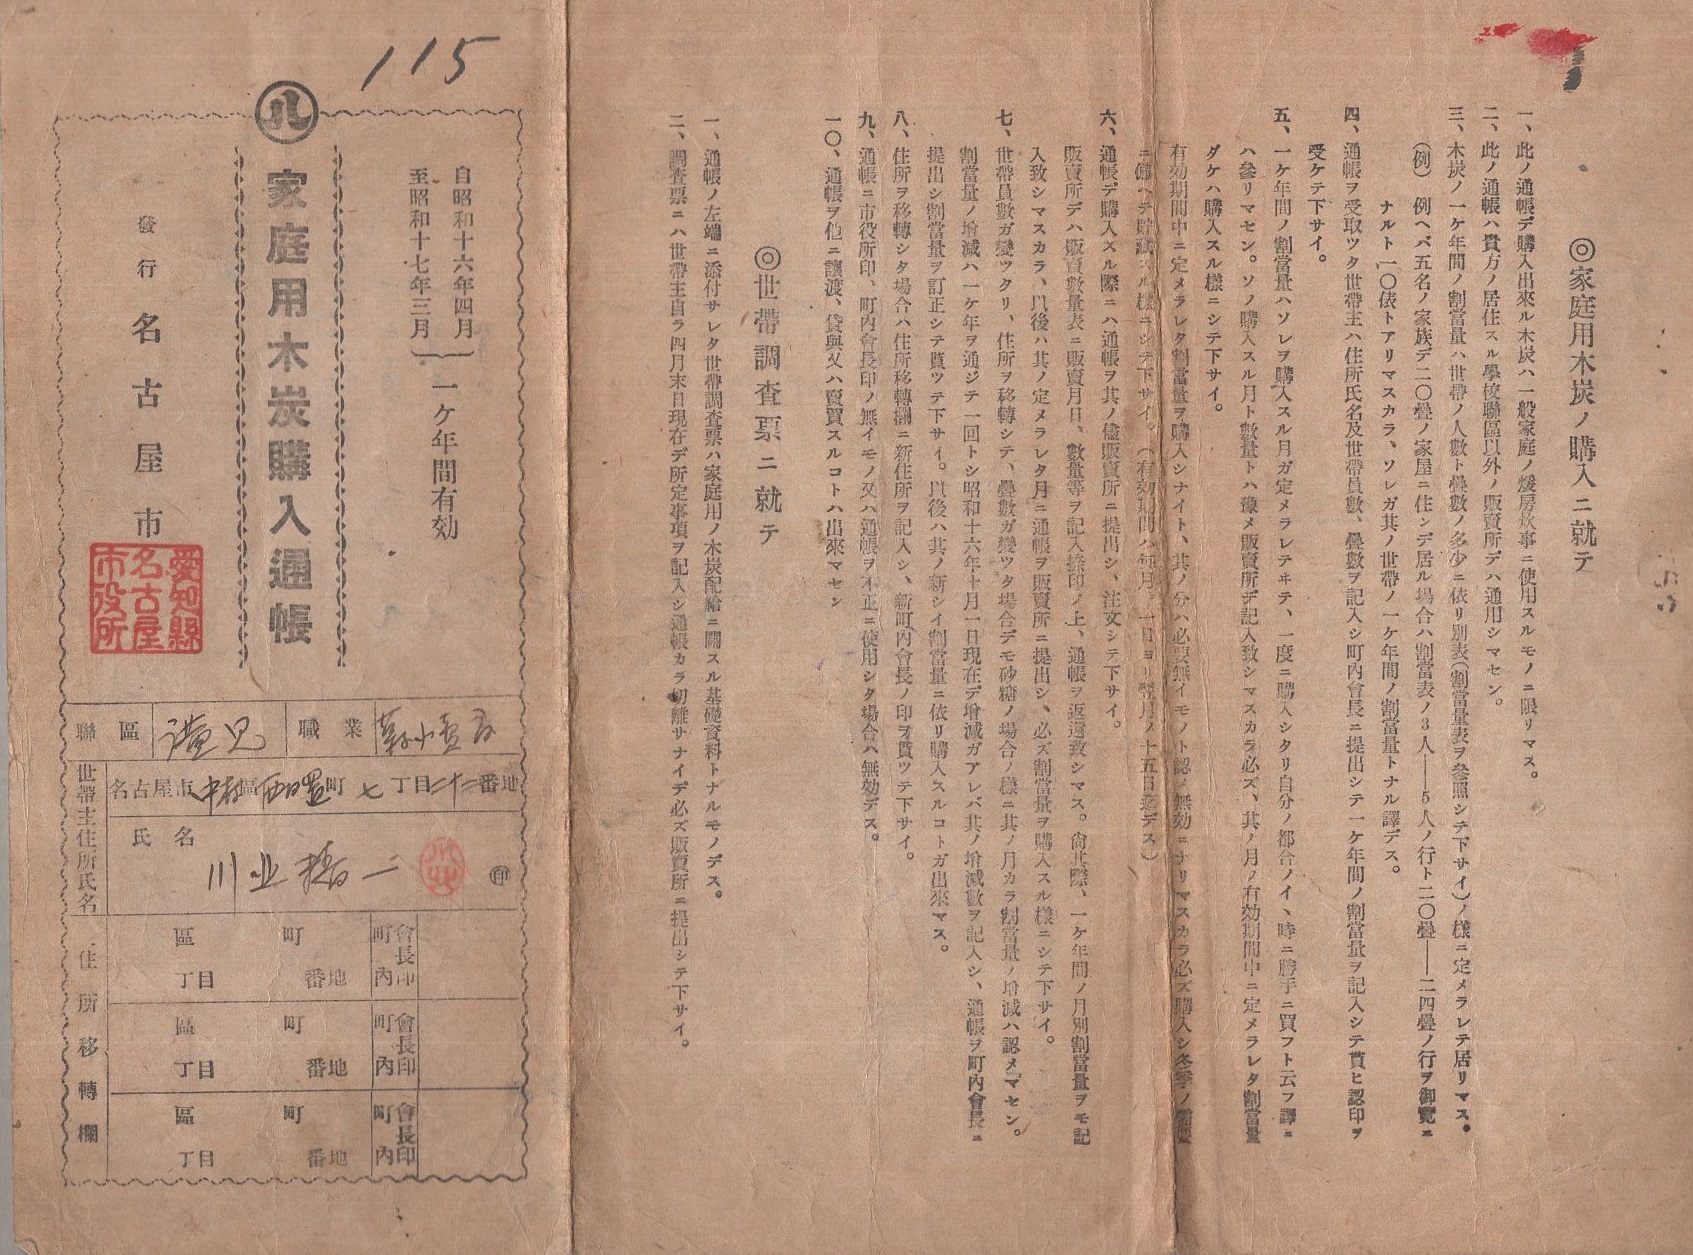 ◎家庭用木炭ノ購入ニ就テ
一、此ノ通帳デ購入出來ル木炭ハ一般家庭ノ煖房炊事ニ使用スルモノニ限リマス。
二、此ノ通帳ハ貴方ノ居住スル學校聯區以外ノ販賣所デハ通用シマセン。
三、木炭ノ一ケ年間ノ割當量ハ世帶ノ人數ト疊數ノ多少ニ依リ別表(割當量表ヲ參照シテ下サイ)ノ樣ニ定メラレテ居リマス。
(例) 例ヘバ五名ノ家族デ二〇疊ノ家屋ニ住ンデ居ル場合ハ割當表ノ3人――5人ノ行ト二〇疊――二四疊ノ行ヲ御覽ニ
ナルト一〇俵トアリマスカラ、ソレガ其ノ世帶ノ一ケ年間ノ割當量トナル譯デス。
四、通帳ヲ受取ツタ世帶主ハ住所氏名及世帶員數、疊數ヲ記入シ町內會長ニ提出シテ一ケ年間ノ割當量ヲ記入シテ貰ヒ認印ヲ
受ケテ下サイ。
五、一ケ年間ノ割當量ハソレヲ購入スル月ガ定メラレテヰテ、一度ニ購入シタリ自分ノ都合ノイヽ時ニ勝手ニ買フト云フ譯ニ
ハ參リマセン。ソノ購入スル月ト數量トハ豫メ販賣所デ記入致シマスカラ必ズ、其ノ月ノ有効期間中ニ定メラレタ割當量
ダケハ購入スル樣ニシテ下サイ。
有効期間中ニ定メラレタ割當量ヲ購入シナイト、其ノ分ハ必要無イモノト認メ無効ニナリマスカラ必ズ購入シ冬季ノ需要
ニ備ヘテ貯藏スル樣ニシテ下サイ。(有効期間ハ每月ノ一日ヨリ翌月ノ十五日迄デス)
六、通帳デ購入スル際ニハ通帳ヲ其ノ儘販賣所ニ提出シ、注文シテ下サイ。
販賣所デハ販賣數量表ニ販賣月日、數量等ヲ記入捺印ノ上、通帳ヲ返還致シマス。尙其際、一ケ年間ノ月別割當量ヲモ記
入致シマスカラ、以後ハ其ノ定メラレタ月ニ通帳ヲ販賣所ニ提出シ、必ズ割當量ヲ購入スル樣ニシテ下サイ。
七、世帶員數ガ變ツタリ、住所ヲ移轉シテ、疊數ガ變ツタ場合デモ砂糖ノ場合ノ樣ニ其ノ月カラ割當量ノ增減ハ認メマセン。
割當量ノ增減ハ一ケ年ヲ通ジテ一回トシ昭和十六年十月一日現在デ增減ガアレバ其ノ增減數ヲ記入シ、通帳ヲ町內會長ニ
提出シ割當量ヲ訂正シテ貰ツテ下サイ。以後ハ其ノ新シイ割當量ニ依リ購入スルコトガ出來マス。
八、住所ヲ移轉シタ場合ハ住所移轉欄ニ新住所ヲ記入シ、新町內會長ノ印ヲ貰ツテ下サイ。
九、通帳ニ市役所印、町內會長印ノ無イモノ又ハ通帳ヲ不正ニ使用シタ場合ハ無効デス。
一〇、通帳ヲ他ニ讓渡、貸與又ハ賣買スルコトハ出來マセン
◎世帶調査票ニ就テ
一、通帳ノ左端ニ添付サレタ世帶調査票ハ家庭用ノ木炭配給ニ關スル基礎資料トナルモノデス。
二、調査票ニハ世帶主自ラ四月末日現在デ所定事項ヲ記入シ通帳カラ切離サナイデ必ズ販賣所ニ提出シテ下サイ。
115
自昭和十六年四月
至昭和十七年三月
一ケ年間有効
八
家庭用木炭購入通帳
發行 名古屋市
愛知縣
名古屋
市役所
聯區
職業
世帶主住所氏名
名古屋市中村區 町七丁目二十二番地
氏名
川 一
印
住所移轉欄
區 町
丁目 番地
町內會長印
區 町
丁目 番地
町內會長印
區 町
丁目 番地
町內會長印